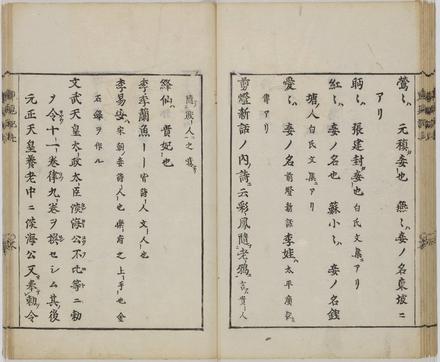 鶯〻 元稹妾也 燕〻妾ノ名東坡ニ
アリ
盼〻 張建封妾也 白氏文集ニアリ
紅〻 妾ノ名也 蘇小〻 妾ノ名錢
塘人 白氏文集ニアリ
愛〻 妾ノ名 剪燈新話 李娃 太平廣記
傳アリ
剪燈新話ノ内詩云彩鳳隨老鴉
隨人之
絳仙 貴妃也
李季蘭魚ーー 皆詩人文人也
李易安 宋朝委詩人也 樂府之上手也 金
石錄ヲ作ル
文武天皇太政大臣淡海公不比等ニ勅
ヲ令十一卷律九卷ヲ撰セシム其後
元正天皇養老中ニ淡海公又奉勅令